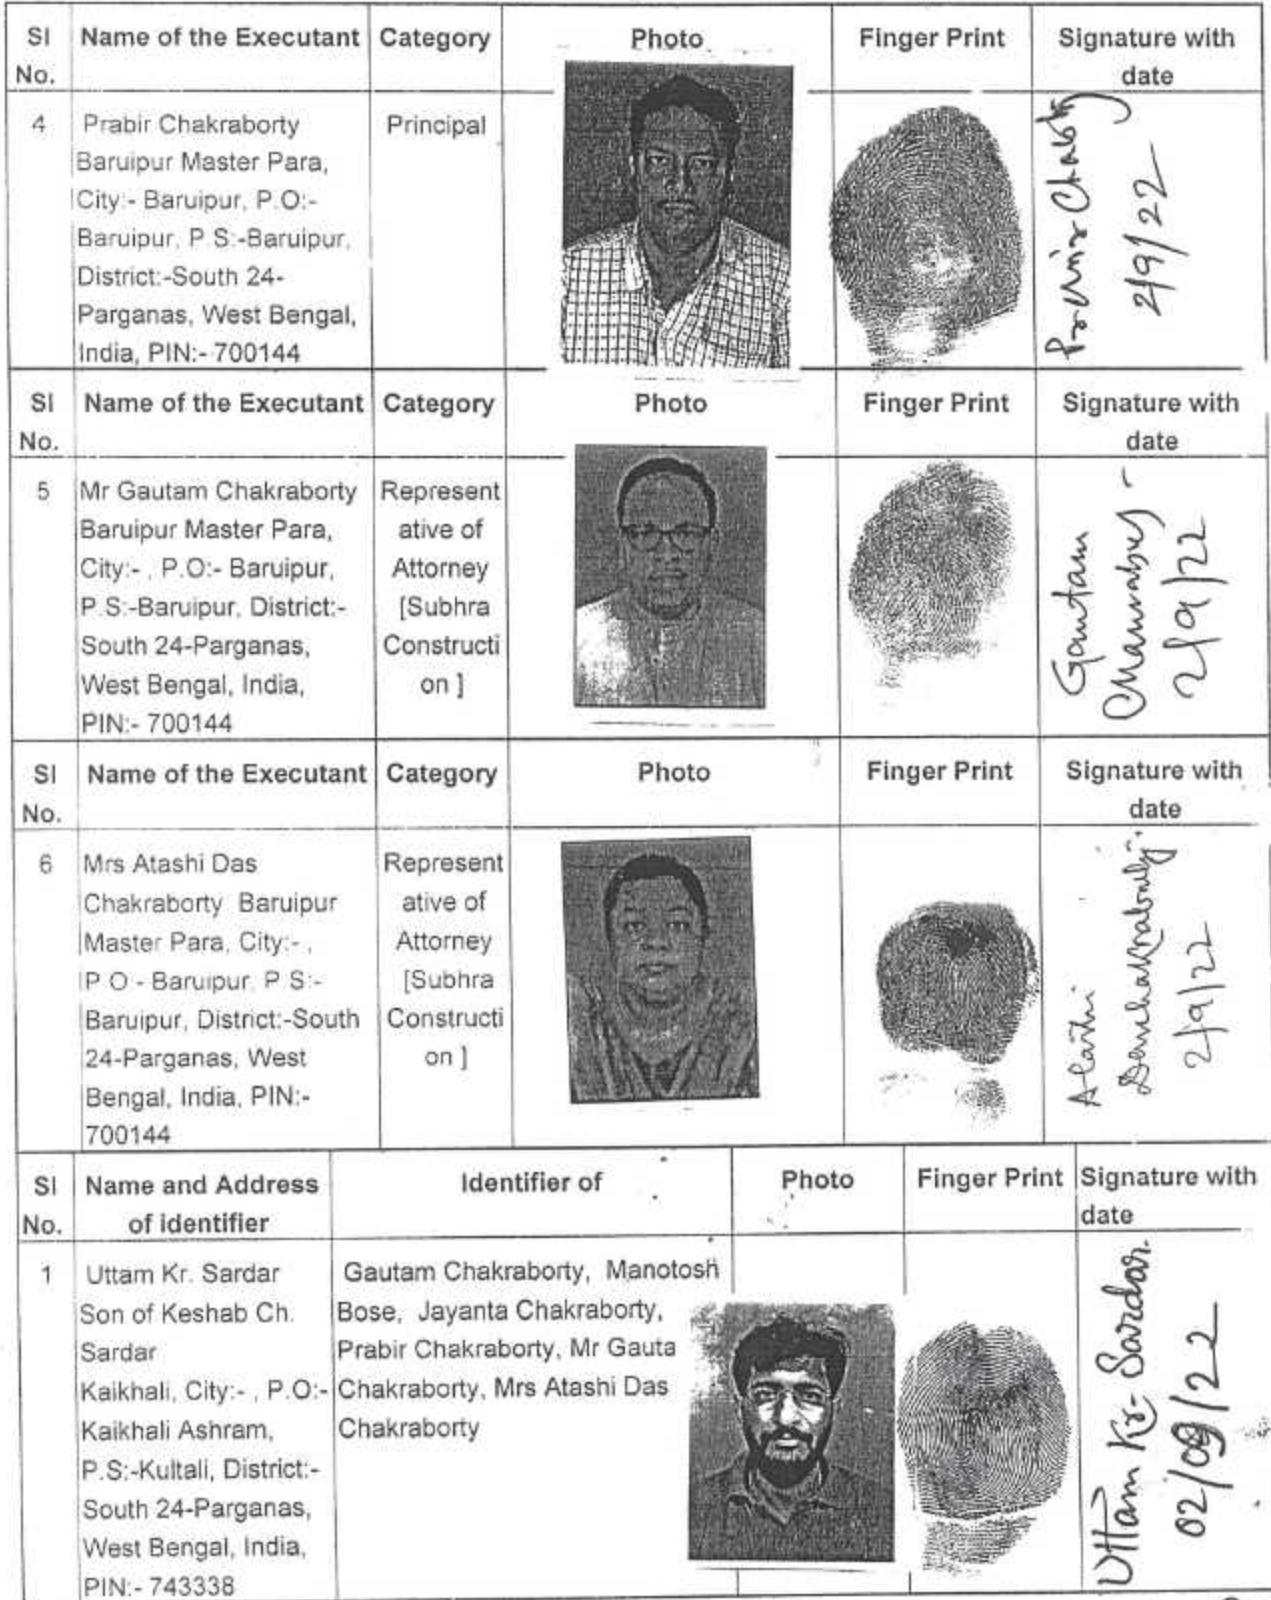 Sl No.
Name of the Executant
Category
Photo
Finger Print
Signature with date
4
Prabir Chakraborty
Baruipur Master Para,
City:- Baruipur, P.O:-
Baruipur, P.S:-Baruipur,
District:-South 24-
Parganas, West Bengal,
India, PIN:- 700144
Principal
2/9/22
Sl No.
Name of the Executant
Category
Photo
Finger Print
Signature with date
5
Mr Gautam Chakraborty
Baruipur Master Para,
City:- , P.O:- Baruipur,
P.S:-Baruipur, District:-
South 24-Parganas,
West Bengal, India,
PIN:- 700144
Represent
ative of
Attorney
[Subhra
Constructi
on ]
Goutam
2/9/22
Sl No.
Name of the Executant
Category
Photo
Finger Print
Signature with date
6
Mrs Atashi Das
Chakraborty Baruipur
Master Para, City:- ,
P.O:- Baruipur, P.S:-
Baruipur, District:-South
24-Parganas, West
Bengal, India, PIN:-
700144
Represent
ative of
Attorney
[Subhra
Constructi
on ]
2/9/22
Sl No.
Name and Address
of identifier
Identifier of
Photo
Finger Print
Signature with
date
1
Uttam Kr. Sardar
Son of Keshab Ch.
Sardar
Kaikhali, City:- , P.O:-
Kaikhali Ashram,
P.S:-Kultali, District:-
South 24-Parganas,
West Bengal, India,
PIN:- 743338
Gautam Chakraborty, Manotosh
Bose, Jayanta Chakraborty,
Prabir Chakraborty, Mr Gauta
Chakraborty, Mrs Atashi Das
Chakraborty
Uttam Kr. Sardar.
02/09/22